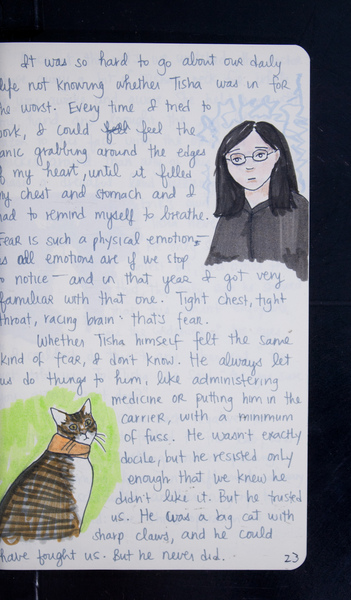 It was so hard to go about our daily
life not knowing whether Tisha was in for
the worst. Every time I tried to
work, I could feel the
panic grabbing around the edges
of my heart, until it filled
my chest and stomach and I
had to remind myself to breathe.
Fear is such a physical emotion—
as all emotions are if we stop
to notice—and in that year I got very
familiar with that one. Tight chest, tight
throat, racing brain: that's fear.
Whether Tisha himself felt the same
kind of fear, I don't know. He always let
us do things to him, like administering
medicine or putting him in the
carrier, with a minimum
of fuss. He wasn't exactly
docile, but he resisted only
enough that we knew he
didn't like it. But he trusted
us. He was a big cat with
sharp claws, and he could
have fought us. But he never did.
23